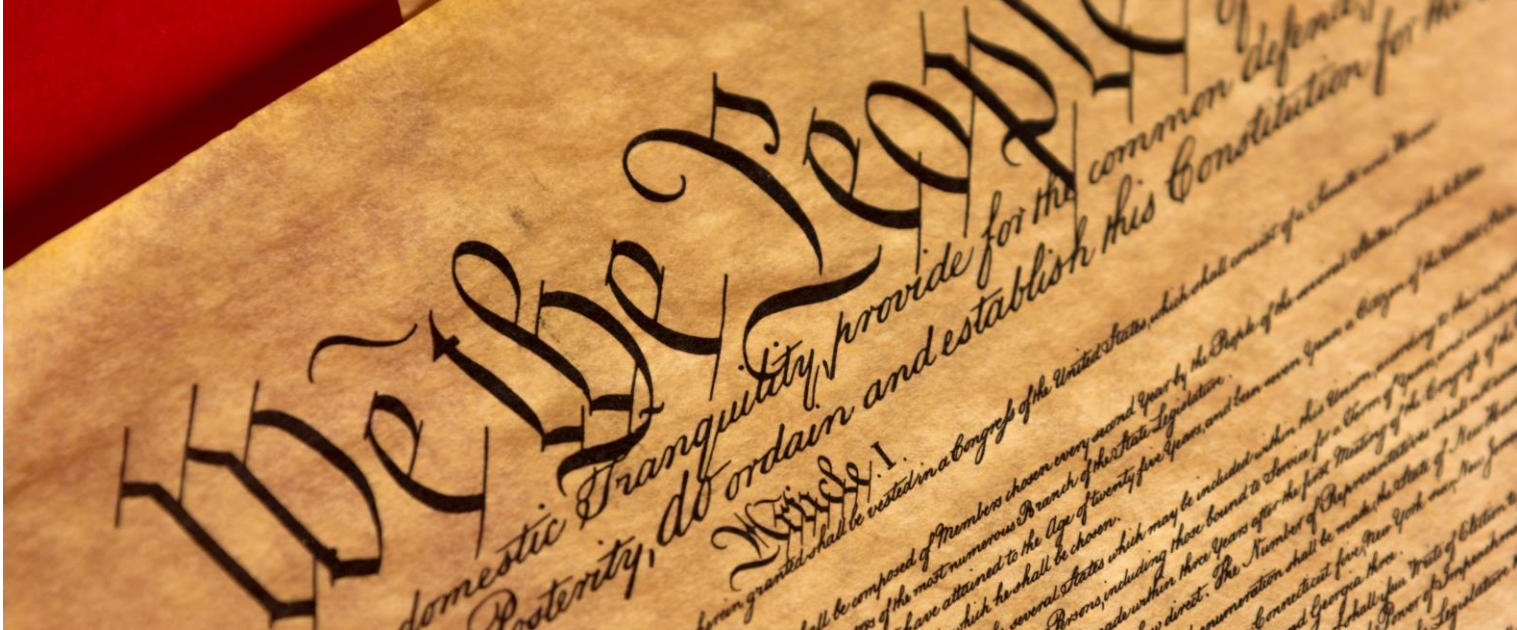 We the People
of
domestic Tranquility, provide for the common defence,
Posterity, do ordain and establish this Constitution for the
Article. I.
herein granted shall be vested in a Congreſs of the United States, which shall consist of a Senate and
shall be composed of Members chosen every second Year by the People of the several States, and the
of the most numerous Branch of the State Legislature.
have attained to the Age of twenty five Years, and been seven Years a Citizen of the United
which he shall be chosen.
several States which may be included within this Union, according to their
Persons, including those bound to Service for a Term of Years, and
made within three Years after the first Meeting of the Congreſs of the
direct. The Number of Representatives shall not
enumeration shall be made, the State of New
Connecticut five, New York six, New
and Georgia three.
shall Writs of Election to
Power of
Legislature